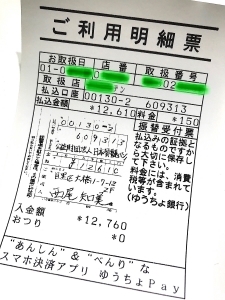 ご利用明細票
お取扱日 店番 取扱番号
01-0 0 02
取扱店 ｹﾝ
払込口座 00130-2 609313
払込金額 *12,610 料金 *150
振替受付票
払込みの証拠
となるものですか
ら大切に保存し
て下さい。
料金には、消費
税等が含まれて
います。
(ゆうちょ銀行)
入金額 *12,760
おつり *0
"あんしん"&"べんり"な
スマホ決済アプリ ゆうちょPay